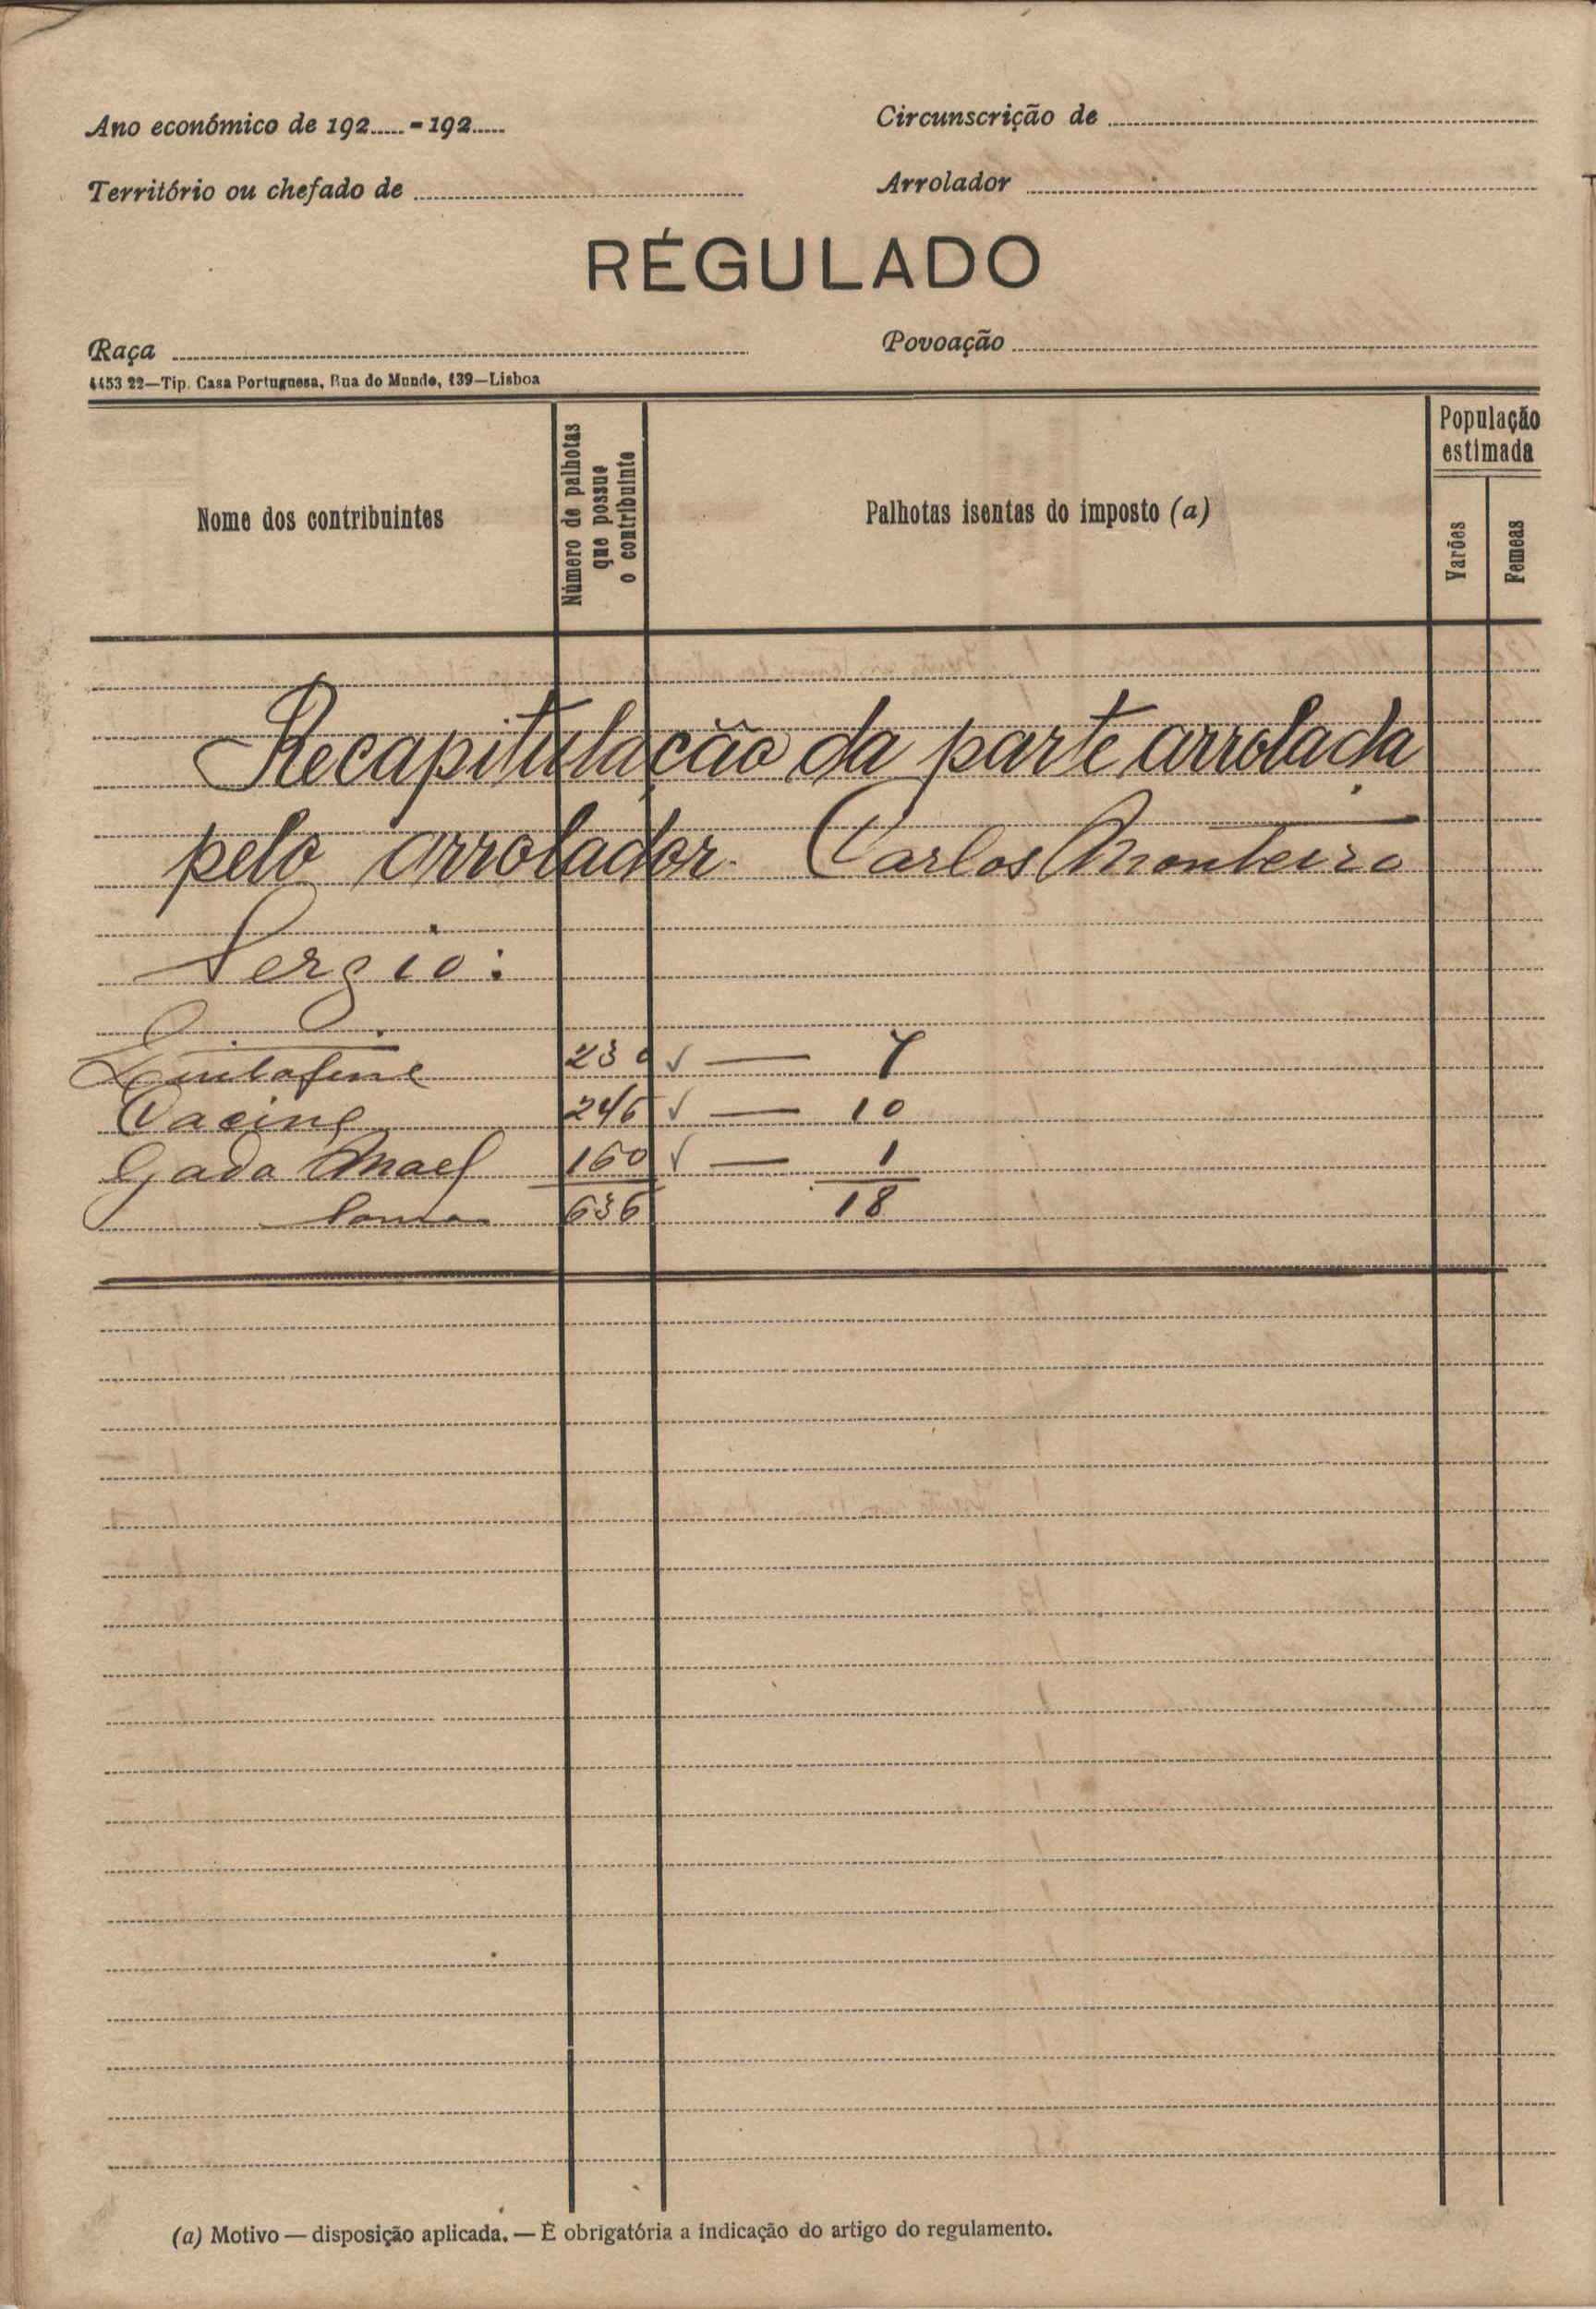 Ano económico de 192..... - 192.....
Circunscrição de
Território ou chefado de
Arrolador
RÉGULADO
Raça
Povoação
4453 22—Tip. Casa Portuguesa, Rua do Mundo, 139—Lisboa
Nome dos contribuintes
Número de palhotas
que possue
o contribuinte
Palhotas isentas do imposto (a)
População
estimada
Varões
Femeas
Recapitulação da parte arrolada
pelo arrolador Carlos Monteiro
Sergio:
230 ✓ — 7
246 ✓ — 10
Gada Mael 160 ✓ — 1
Soma 636 18
(a) Motivo — disposição aplicada. — É obrigatória a indicação do artigo do regulamento.